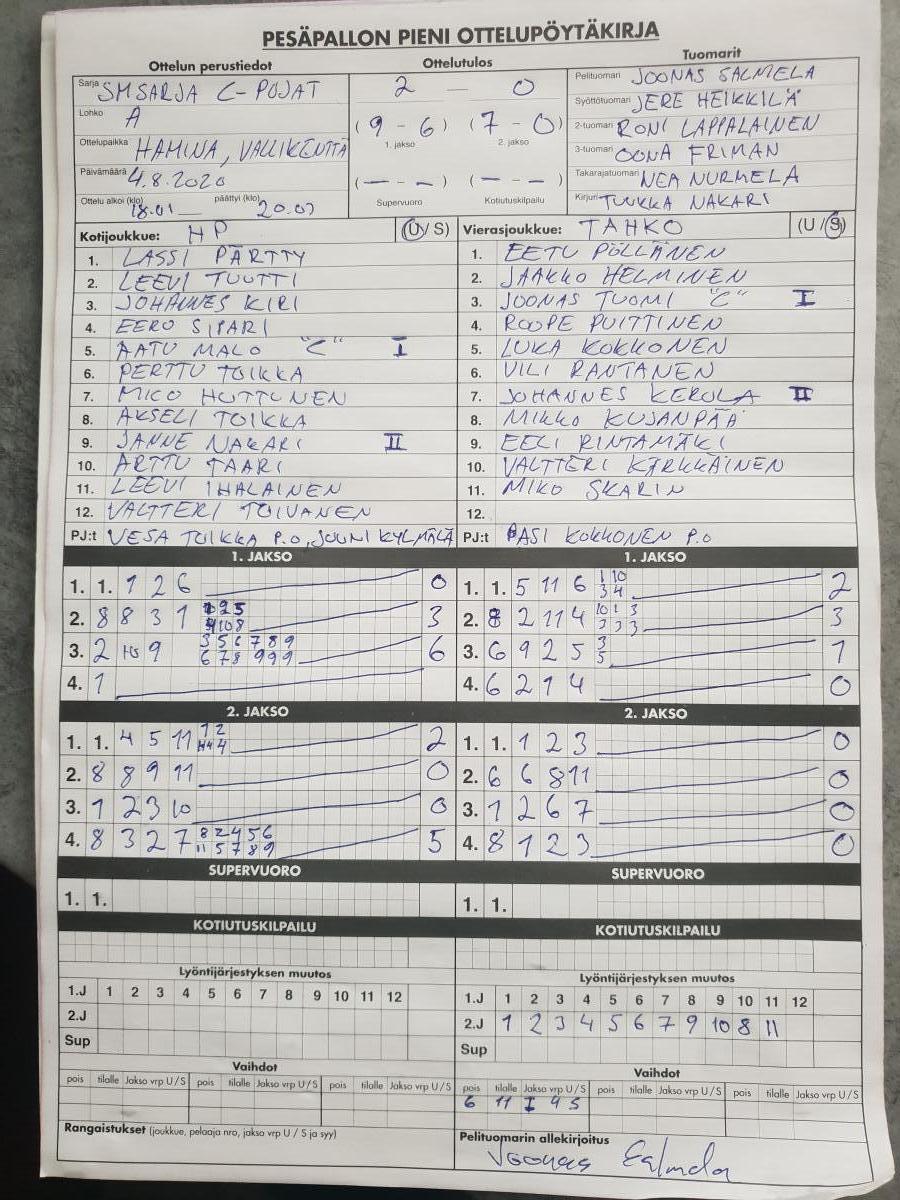 PESÄPALLON PIENI OTTELUPÖYTÄKIRJA
Ottelun perustiedot
Sarja SMSARJA C-POJAT
Lohko A
Ottelupaikka HAMINA, VALLIKENTTÄ
Päivämäärä 4.8.2020
Ottelu alkoi (klo) 18.01 päättyi (klo) 20.07
Ottelutulos
2 — 0
(9 - 6) (7 - 0)
1. jakso 2. jakso
(— - —) (— - —)
Supervuoro Kotiutuskilpailu
Tuomarit
Pelituomari JOONAS SALMELA
Syöttötuomari JERE HEIKKILÄ
2-tuomari RONI LAPPALAINEN
3-tuomari OONA FRIMAN
Takarajatuomari NEA NURMELA
Kirjuri TUUKKA NAKARI
Kotijoukkue: HP (U/S)
1. LASSI PÄRTTY
2. LEEVI TUUTTI
3. JOHANNES KIRI
4. EERO SIPARI
5. AATU MALO "C" I
6. PERTTU TOIKKA
7. MICO HUTTUNEN
8. AKSELI TOIKKA
9. JANNE NAKARI II
10. ARTTU TAARI
11. LEEVI IHALAINEN
12. VALTTERI TOIVANEN
PJ:t VESA TOIKKA P.O, JOUNI KYLMÄLÄ
Vierasjoukkue: TAHKO (U/S)
1. EETU PÖLLÄNEN
2. JAAKKO HELMINEN
3. JOONAS TUOMI "C" I
4. ROOPE PUITTINEN
5. LUKA KOKKONEN
6. VILI RANTANEN
7. JOHANNES KEROLA II
8. MIKKO KUJANPÄÄ
9. EELI RINTAMÄKI
10. VALTTERI KÄRKKÄINEN
11. MIKO SKARIN
12.
PJ:t PASI KOKKONEN P.O
1. JAKSO
1. 1. 1 2 6 0
2. 8 8 3 1 3
3. 2 9 3 5 6 7 8 9 6
6 7 8 9 9 9
4. 1
1. JAKSO
1. 1. 5 11 6 1 10 2
3 4
2. 8 2 11 4 10 1 3 3
3 3 3
3. 6 9 2 5 3 1
5
4. 6 2 1 4 0
2. JAKSO
1. 1. 4 5 11 1 2 2
4
2. 8 8 9 11 0
3. 1 2 3 10 0
4. 8 3 2 7 8 2 4 5 6 5
11 5 7 8 9
2. JAKSO
1. 1. 1 2 3 0
2. 6 6 8 11 0
3. 1 2 6 7 0
4. 8 1 2 3 0
SUPERVUORO
1. 1.
SUPERVUORO
1. 1.
KOTIUTUSKILPAILU
KOTIUTUSKILPAILU
Lyöntijärjestyksen muutos
1.J 1 2 3 4 5 6 7 8 9 10 11 12
2.J
Sup
Lyöntijärjestyksen muutos
1.J 1 2 3 4 5 6 7 8 9 10 11 12
2.J 1 2 3 4 5 6 7 9 10 8 11
Sup
Vaihdot
pois tilalle Jakso vrp U/S pois tilalle Jakso vrp U/S pois tilalle Jakso vrp U/S
Vaihdot
pois tilalle Jakso vrp U/S pois tilalle Jakso vrp U/S pois tilalle Jakso vrp U/S
6 11 I 4 S
Rangaistukset (joukkue, pelaaja nro, jakso vrp U / S ja syy)
Pelituomarin allekirjoitus
Joonas Salmela